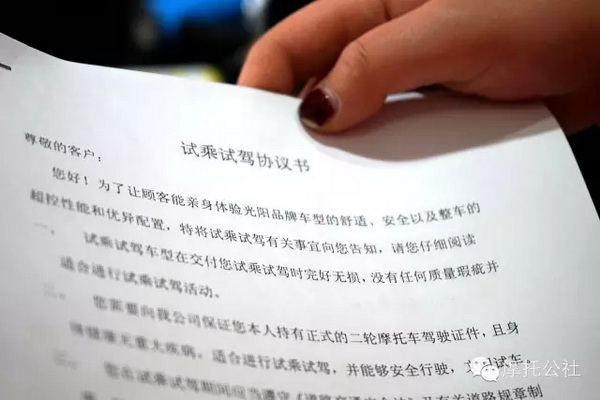 试乘试驾协议书
尊敬的客户：
您好！为了让顾客能亲身体验光阳品牌车型的舒适、安全以及整车的
超控性能和优异配置，特将试乘试驾有关事宜向您告知，请您仔细阅读
一、 试乘试驾车型在交付您试乘试驾时完好无损，没有任何质量瑕疵并
适合进行试乘试驾活动。
二、 您需要向我公司保证您本人持有正式的二轮摩托车驾驶证件，且身
体健康无重大疾病，适合进行试乘试驾，并能够安全行驶，文明试车。
您在试乘试驾期间应当遵守《道路交通安全法》及有关道路规章制
摩托公社